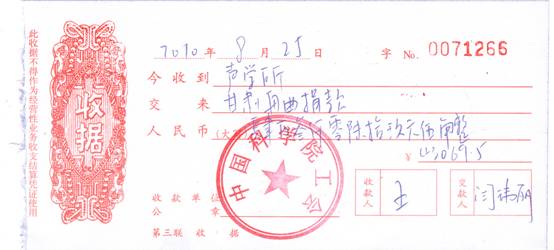 此收据不得作为经营性业务收支结算凭证使用
收据
2010年8月25日 字 No. 0071266
今收到 声学所
交来 甘肃舟曲捐款
人民币(大写) 零陆拾 元伍角整
¥ 069.5
中国科学院工会
收款单位
公章
收款人 王
交款人 闫
第三联 收据